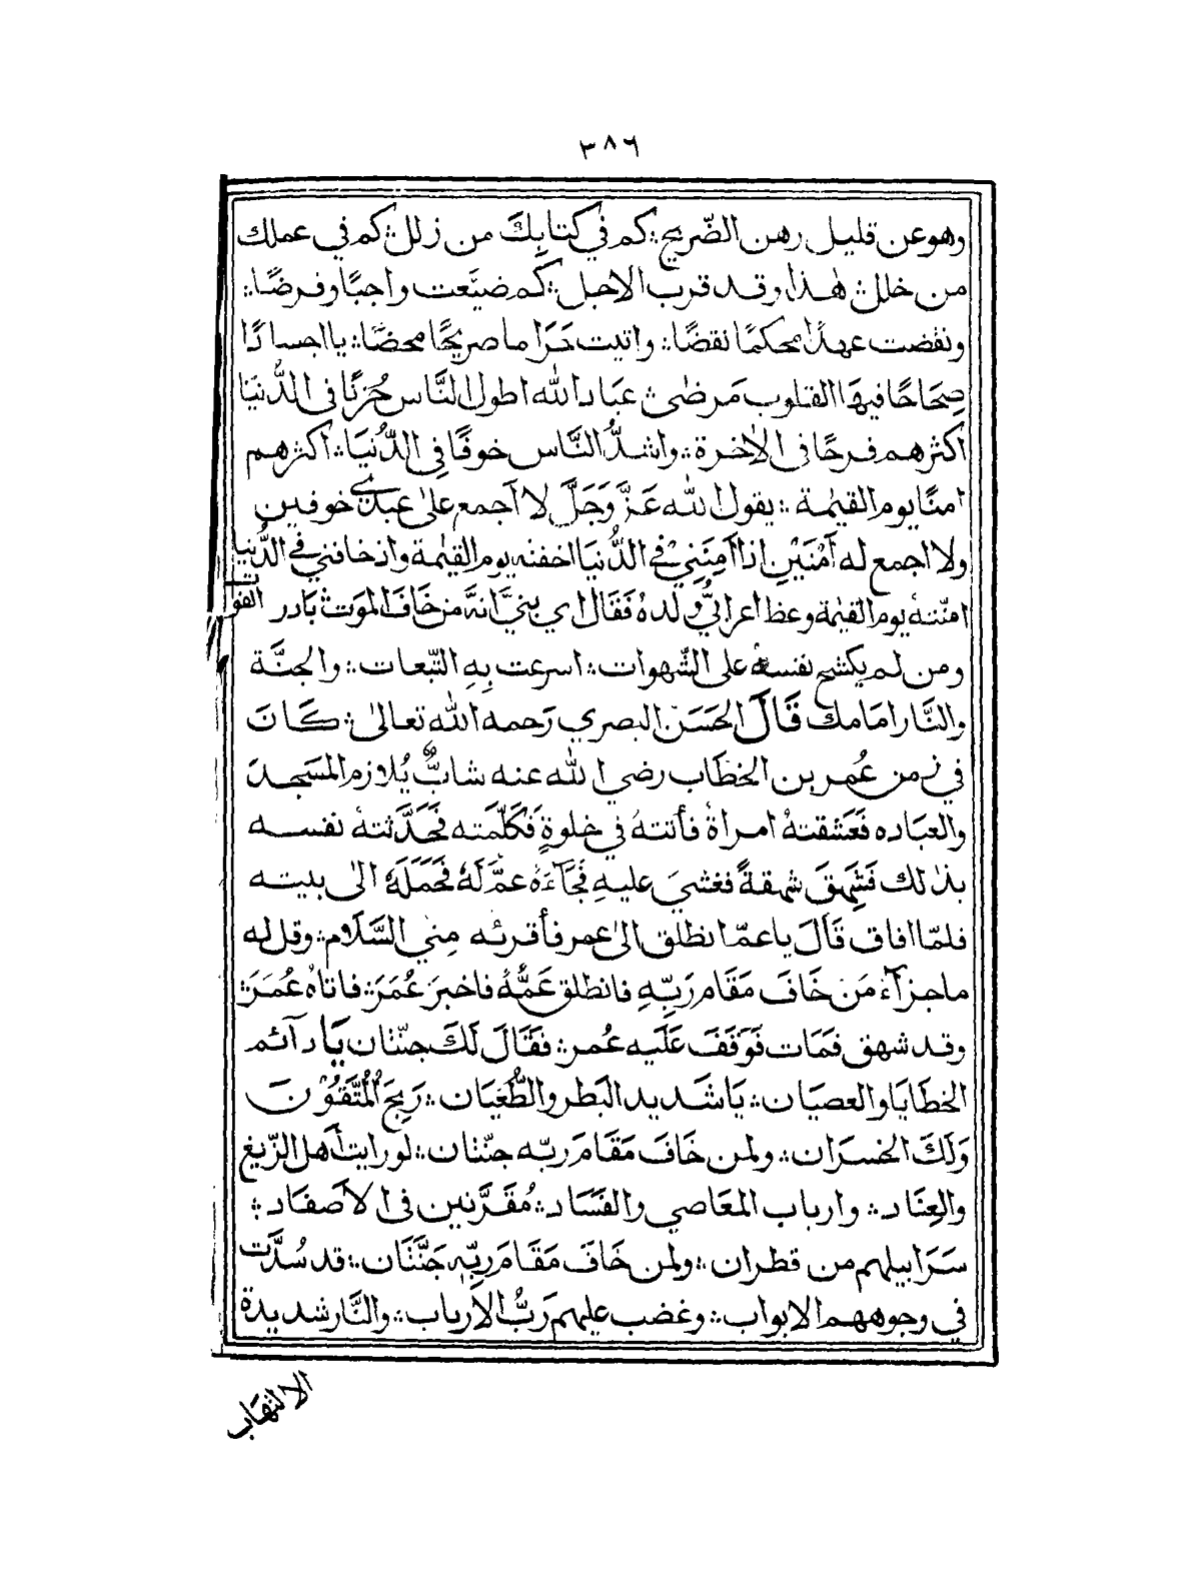 ٣٨٦
وهو عن قليل رهن الضّريح ؞ كم في كتابِكَ من زلل ؞ كم في عملك
من خلل ؞ هٰذا وقد قرب الاجل ؞ كم ضيَّعت واجبًا وفرضًا ؞
ونقضت عهدًا محكمًا نقضًا ؞ واتيت حَرَاما صريحًا محضًا ؞ يا اجسادًا
صِحَاحًا فيهَا القلوب مَرضىٰ ؞ عبَاد الله اطول النَّاس حُزنًا فى الدُّنيَا
اكثرهم فرحًا فى الاٰخرة ؞ واشدُّ النَّاس خوفًا فِى الدُّنيَا ؞ اكثرهم
امنًا يوم القيٰمة ؞ يقول الله عَزَّ وَجَلَّ لا آجمع علىٰ عبدى خوفين
ولا اجمع له آمْنَيْنِ اذا آمِنَنِيْ في الدُّنيَا اخفته يوم القيٰمة واذ خافني في الدُّنيا
امنّته يوم القيٰمة وعظ اعرابيٌّ ولده فَقَال اى بنيَّ انهَّ من خَافَ الموَتَ بَادر الفَوتَ
ومن لم يكشح نفسهُ على الشّهوات ؞ اسرعت بِهِ التّبعات ؞ والجنَّة
والنَّار امَامك قَالَ الحَسَن البصري رَحمه الله تعالىٰ ؞ كَانَ
في زمن عُمر بن الخطَاب رضي الله عنه شابٌّ يُلازم المَسَجدَ
والعبَاده فَعَشقتهُ امرأة فأتتهُ في خلوةٍ فَكَلَّمَته فَحَدَّثتهُ نفسه
بذلك فَشَهِقَ شهقةً فغشيَ عليهِ فَجَآءَهُ عمٌّ لَهُ فَحَمَلَهُ الىٰ بيته
فلمّا افاق قَالَ يا عمّ انطلق الىٰ عمر فأقرئه مِنّي السَّلَام ؞ وقل له
ما جزآءُ مَن خَافَ مَقَام رَبّهِ فانطلق عَمُّهُ فاخبَر عُمَرَ ؞ فاتاهُ عُمَرَ ؞
وقد شهق فمَات فَوَقَفَ عَلَيه عُمر ؞ فقَالَ لَكَ جنّتان يَا دآئم
الخطَايَا والعصيَان ؞ يَا شَديد البَطر والطُّغيَان ؞ رَبِحَ المُتَّقُوْنَ
وَلَكَ الخسرَان ؞ ولمن خَافَ مَقَامَ ربّه جنّتان ؞ لو رايت اَهل الزّيغ
والعِنَاد ؞ وارباب المعَاصي والفَسَاد ؞ مُقَرَّنين فى الاَصفَاد ؞
سَرَابيلهم من قطران ؞ ولمن خَافَ مَقَامَ ربِّه جَنَّتَان ؞ قد سُدَّت
في وجوههم الابواب ؞ وغضب عليهم رَبُّ الاَرباب ؞ والنَّار شديدة
الالتهَاب